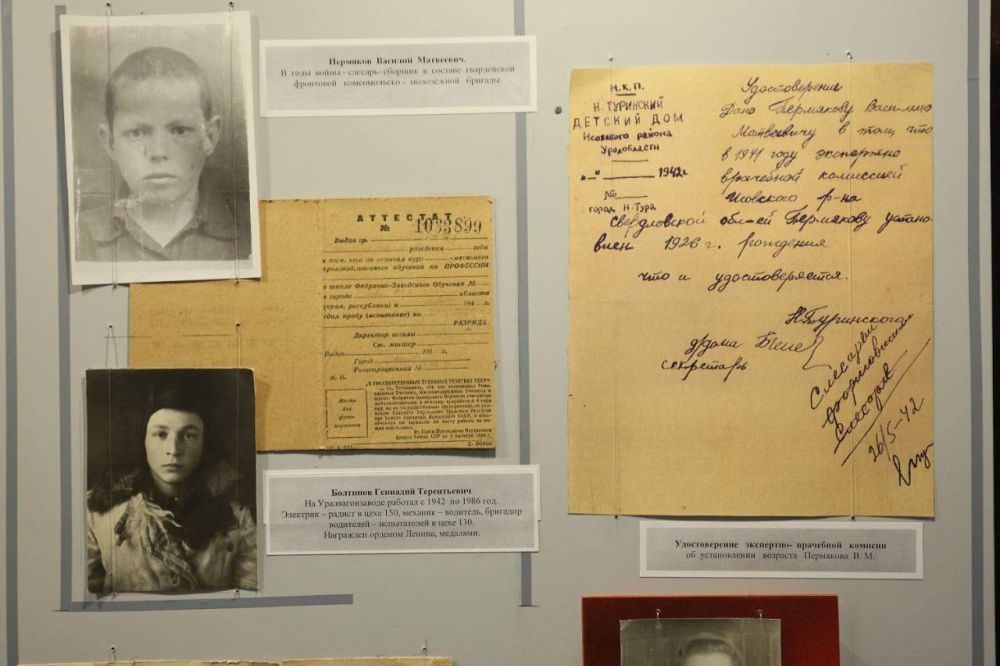 Пермяков Василий Матвеевич.
В годы войны - слесарь- сборщик в составе гвардейской
фронтовой комсомольско - молодёжной бригады.
АТТЕСТАТ
№ 1033899
Выдан гр.
рождения года
в том, что он окончил курс -месячного
производственного обучения по ПРОФЕССИИ
в школе Фабрично-Заводского Обучения №
в городе области
(края, республики) и 194 г.
сдал пробу (испытание) по
РАЗРЯДА.
Директор школы
Ст. мастер
Выдан 194 г.
Город
Регистрационный №
М. П.
Место
для
фото-
карточки
"О ГОСУДАРСТВЕННЫХ ТРУДОВЫХ РЕЗЕРВАХ СССР"
Болтинов Геннадий Терентьевич
На Уралвагонзаводе работал с 1942 по 1986 год.
Электрик – радист в цехе 150, механик – водитель, бригадир
водителей – испытателей в цехе 130.
Награжден орденом Ленина, медалями.
Н.К.П.
Н. ТУРИНСКИЙ
ДЕТСКИЙ ДОМ
Исовского района
Уралобласти
„ “ 1942г
№
город Н-Тура
Удостоверение
Дано Пермякову Василию
Матвеевичу в том, что
в 1941 году экспертно
врачебной комиссией
Исовского р-на
Свердловской обл-ей Пермякову устано-
влен 1926 г. рождения
что и удостоверяется.
Н.Туринского
д/дома
секретарь
Слесарем
Слесарем
26/5-42
Удостоверение экспертно- врачебной комисии
об установлении возраста Пермякова В. М.